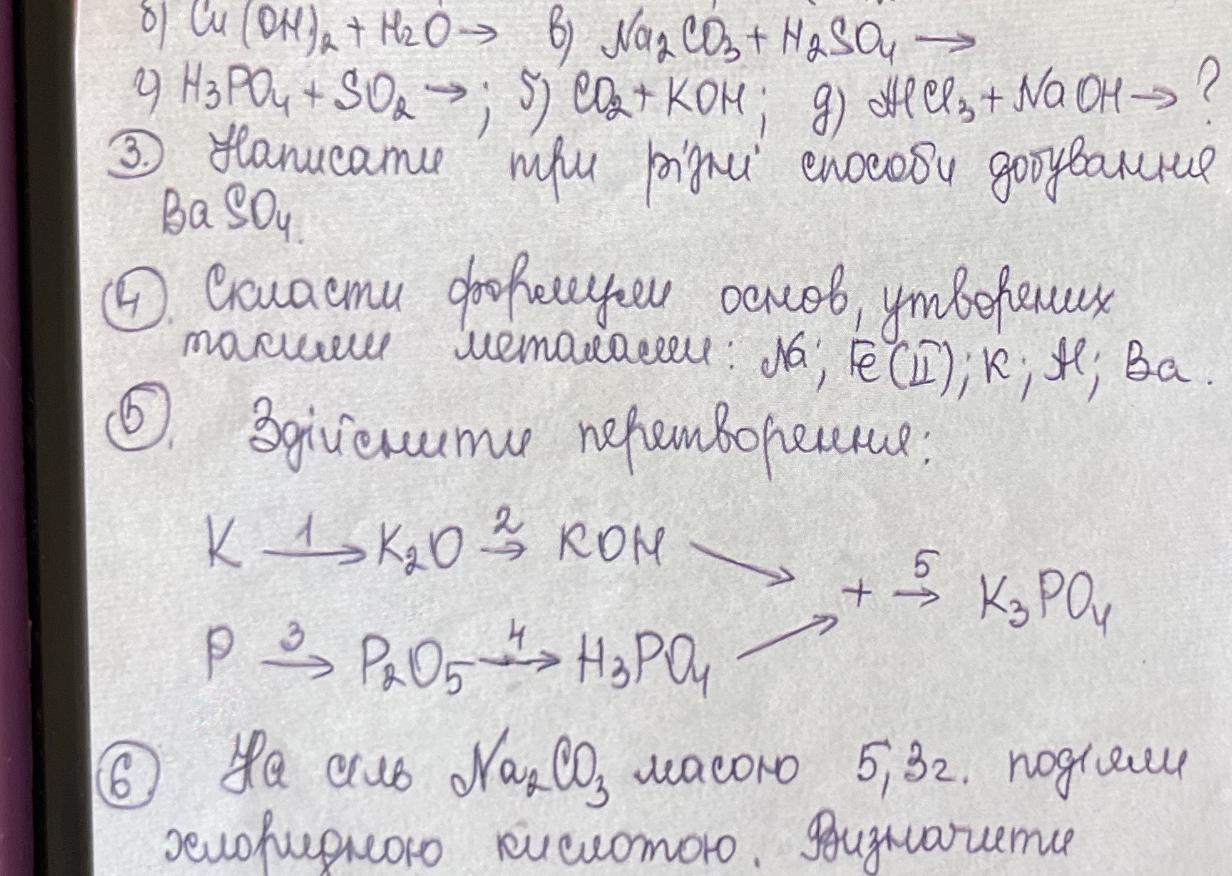 б) Cu(OH)₂ + H₂O → в) Na₂CO₃ + H₂SO₄ →
г) H₃PO₄ + SO₂ →; 5) CO₂ + KOH; д) AlCl₃ + NaOH → ?
3. Написати три різні способи добування
BaSO₄.
4. Скласти формули основ, утворених
такими металами: Na; Fe(II); K; Al; Ba.
5. Здійснити перетворення:
K 1→ K₂O 2→ KOH
+ 5→ K₃PO₄
P 3→ P₂O₅ 4→ H₃PO₄
6. На сіль Na₂CO₃ масою 5,3г. подіяли
хлоридною кислотою. Визначити